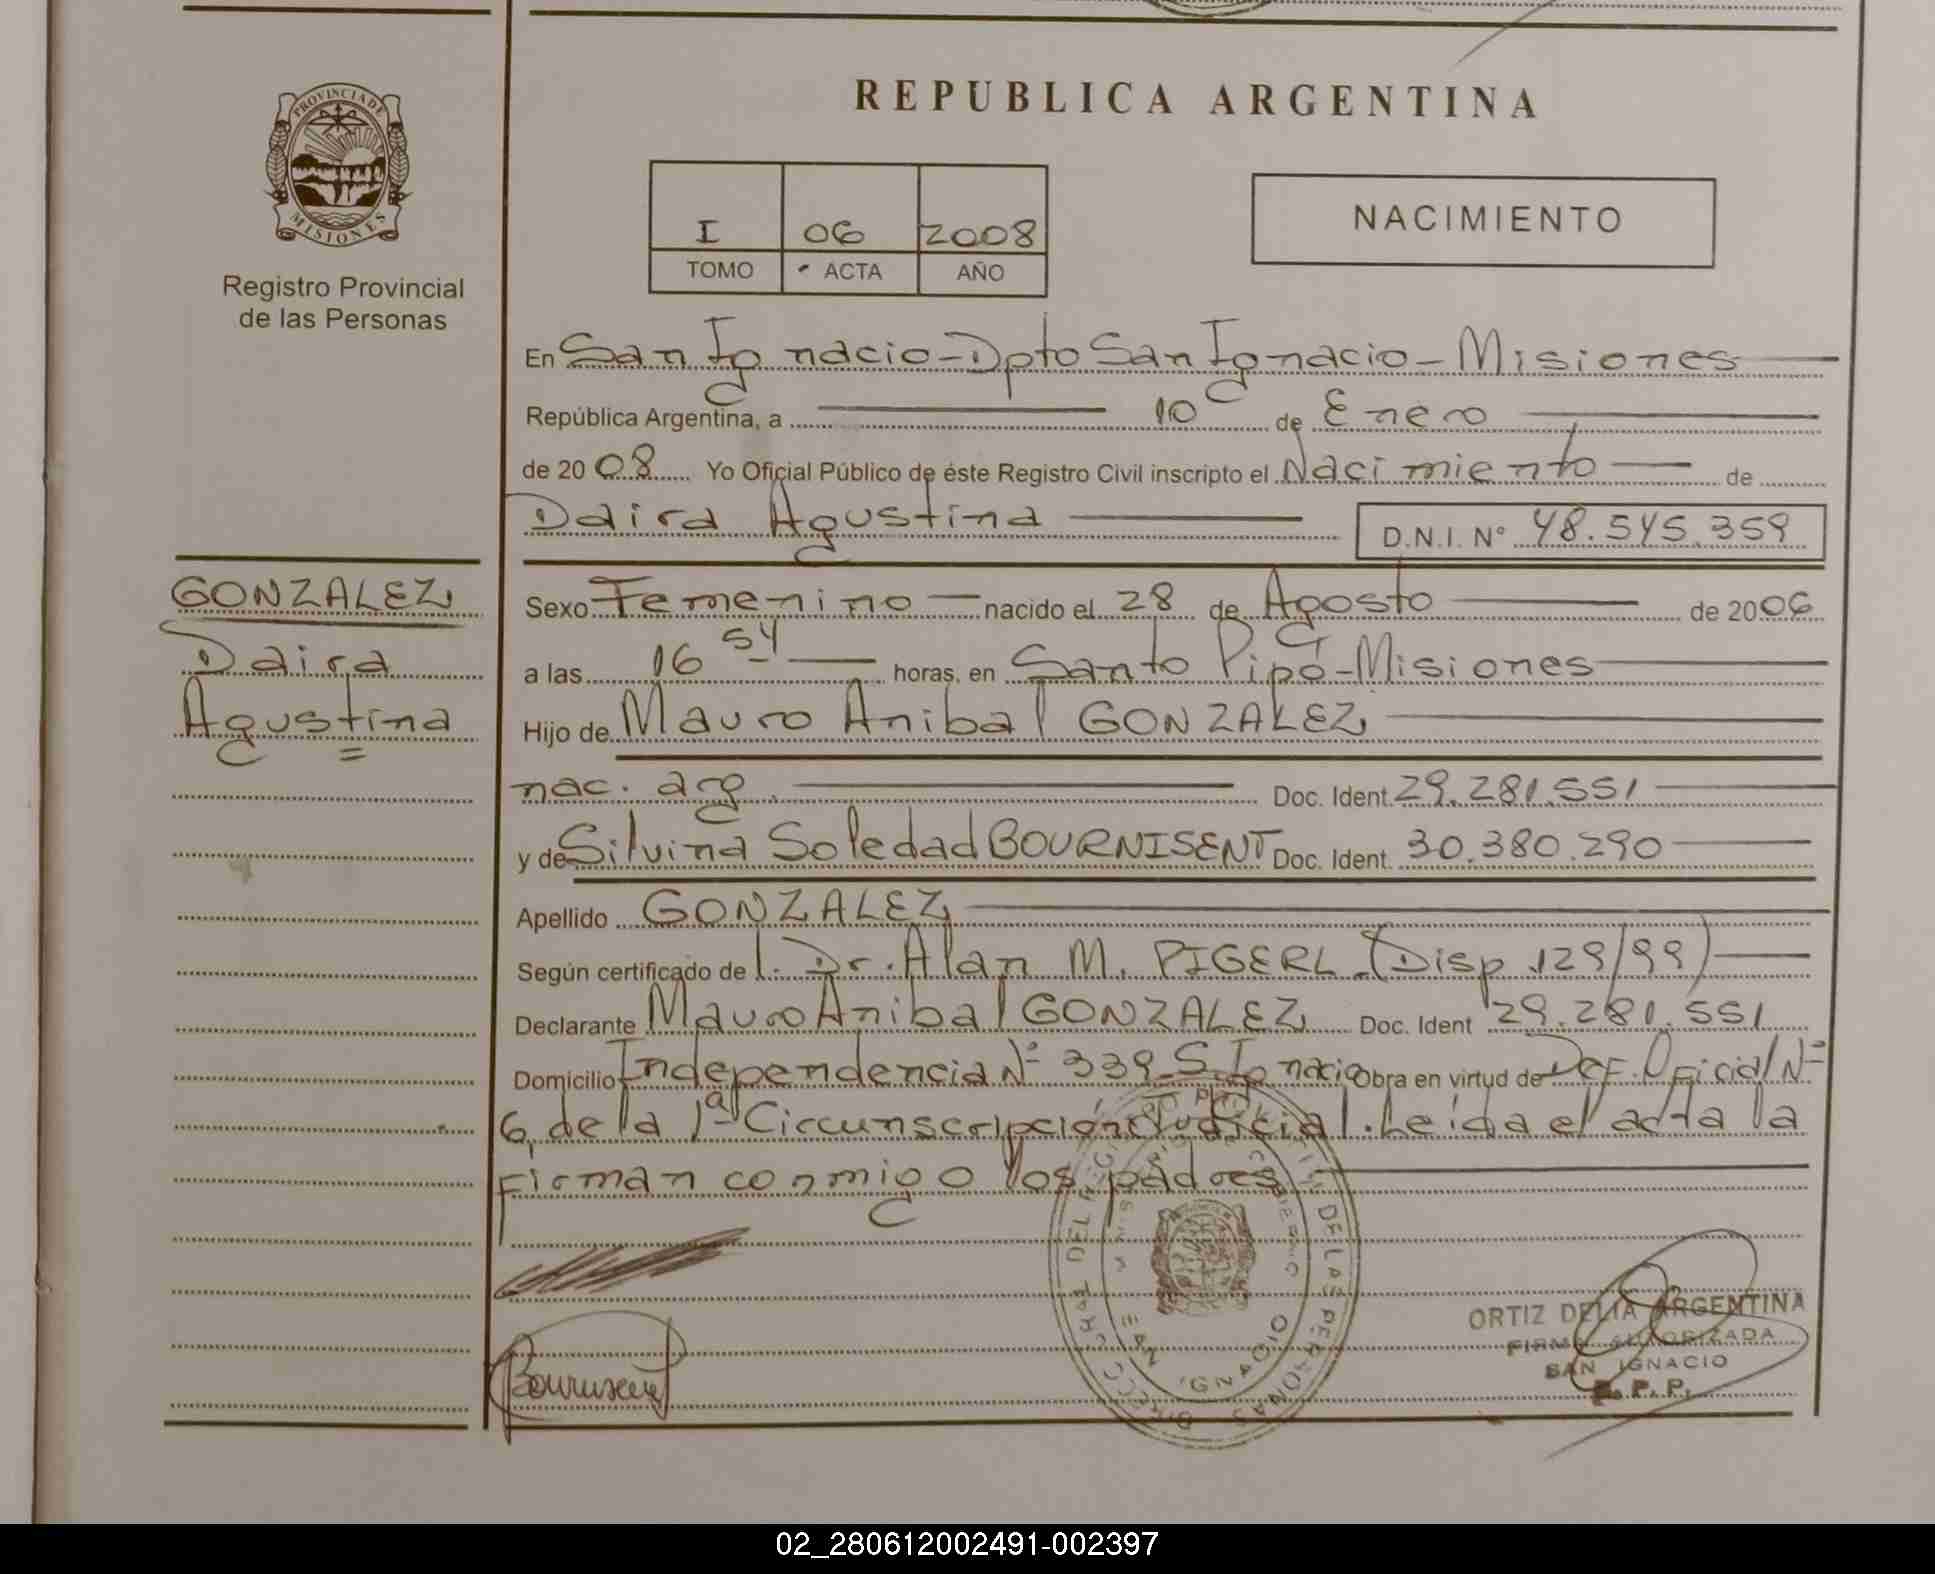 REPUBLICA ARGENTINA
PROVINCIA DE MISIONES
Registro Provincial
de las Personas
I 06 2008
TOMO ACTA AÑO
NACIMIENTO
En San Ignacio - Dpto San Ignacio - Misiones
República Argentina, a 10 de Enero
de 2008 Yo Oficial Público de éste Registro Civil inscripto el Nacimiento de
Daira Agustina D.N.I. N° 48.545.359
GONZALEZ
Daira
Agustina
Sexo Femenino nacido el 28 de Agosto de 2006
a las 16 54 horas, en Santo Pipó - Misiones
Hijo de Mauro Anibal GONZALEZ
nac. arg. Doc. Ident. 29.281.551
y de Silvina Soledad BOURNISENT Doc. Ident. 30.380.290
Apellido GONZALEZ
Según certificado de l. Dr. Alan M. PIGERL. (Disp. 129/99)
Declarante Mauro Anibal GONZALEZ Doc. Ident 29.281.551
Domicilio Independencia N° 339 S. Ignacio Obra en virtud de Def. Oficial N°
6, de la 1ª Circunscripción Judicial. Leída el acta la
firman conmigo los padres
ORTIZ DELIA ARGENTINA
FIRMA AUTORIZADA
SAN IGNACIO
R. P. P.
02_280612002491-002397